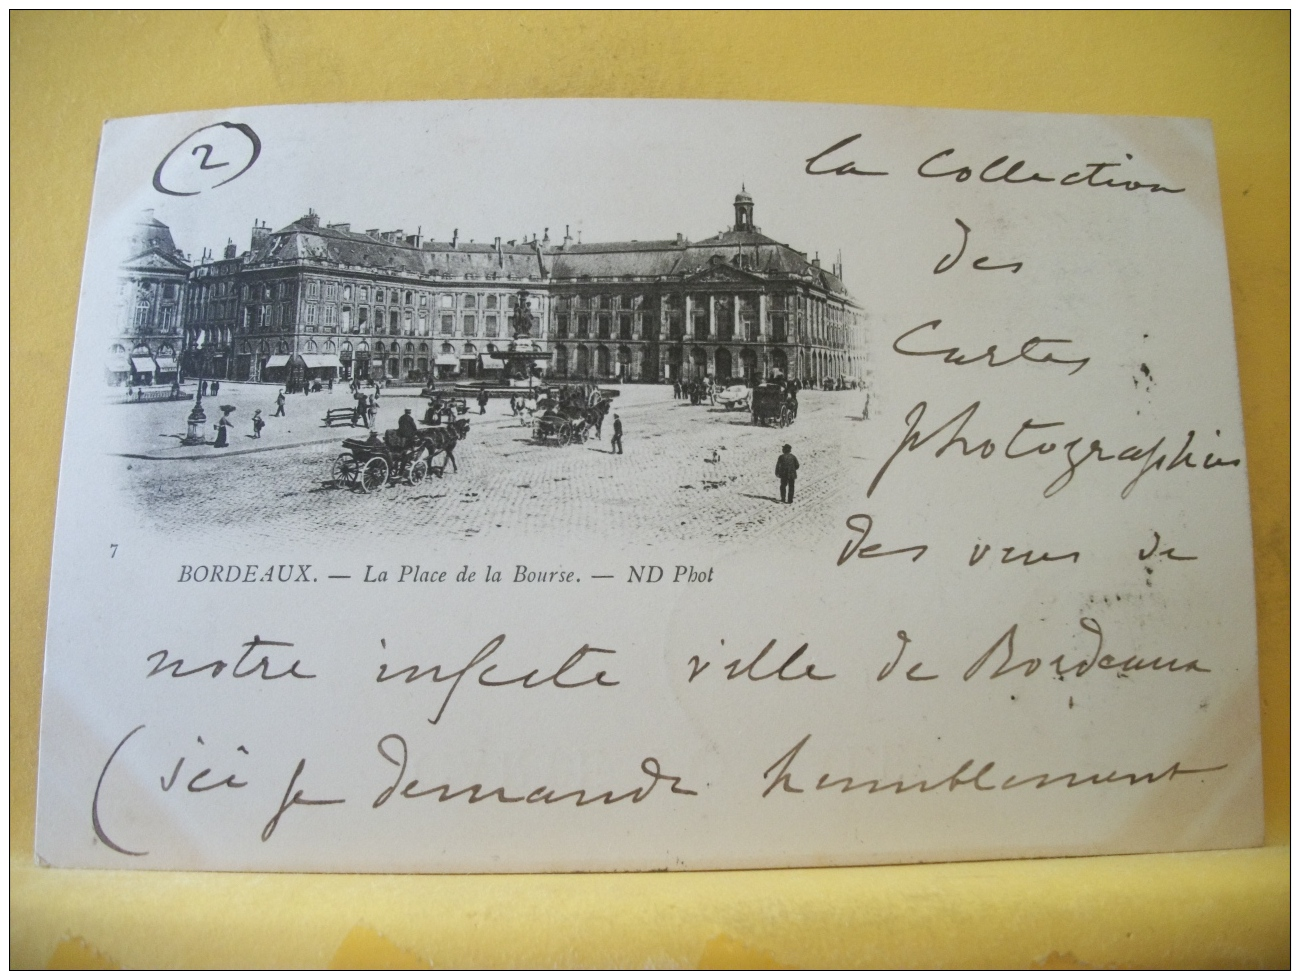 2
la Collection
des
Cartes
photographies
des vues de
7
BORDEAUX. — La Place de la Bourse. — ND Phot
notre infecte ville de Bordeaux
(ici je demande humblement